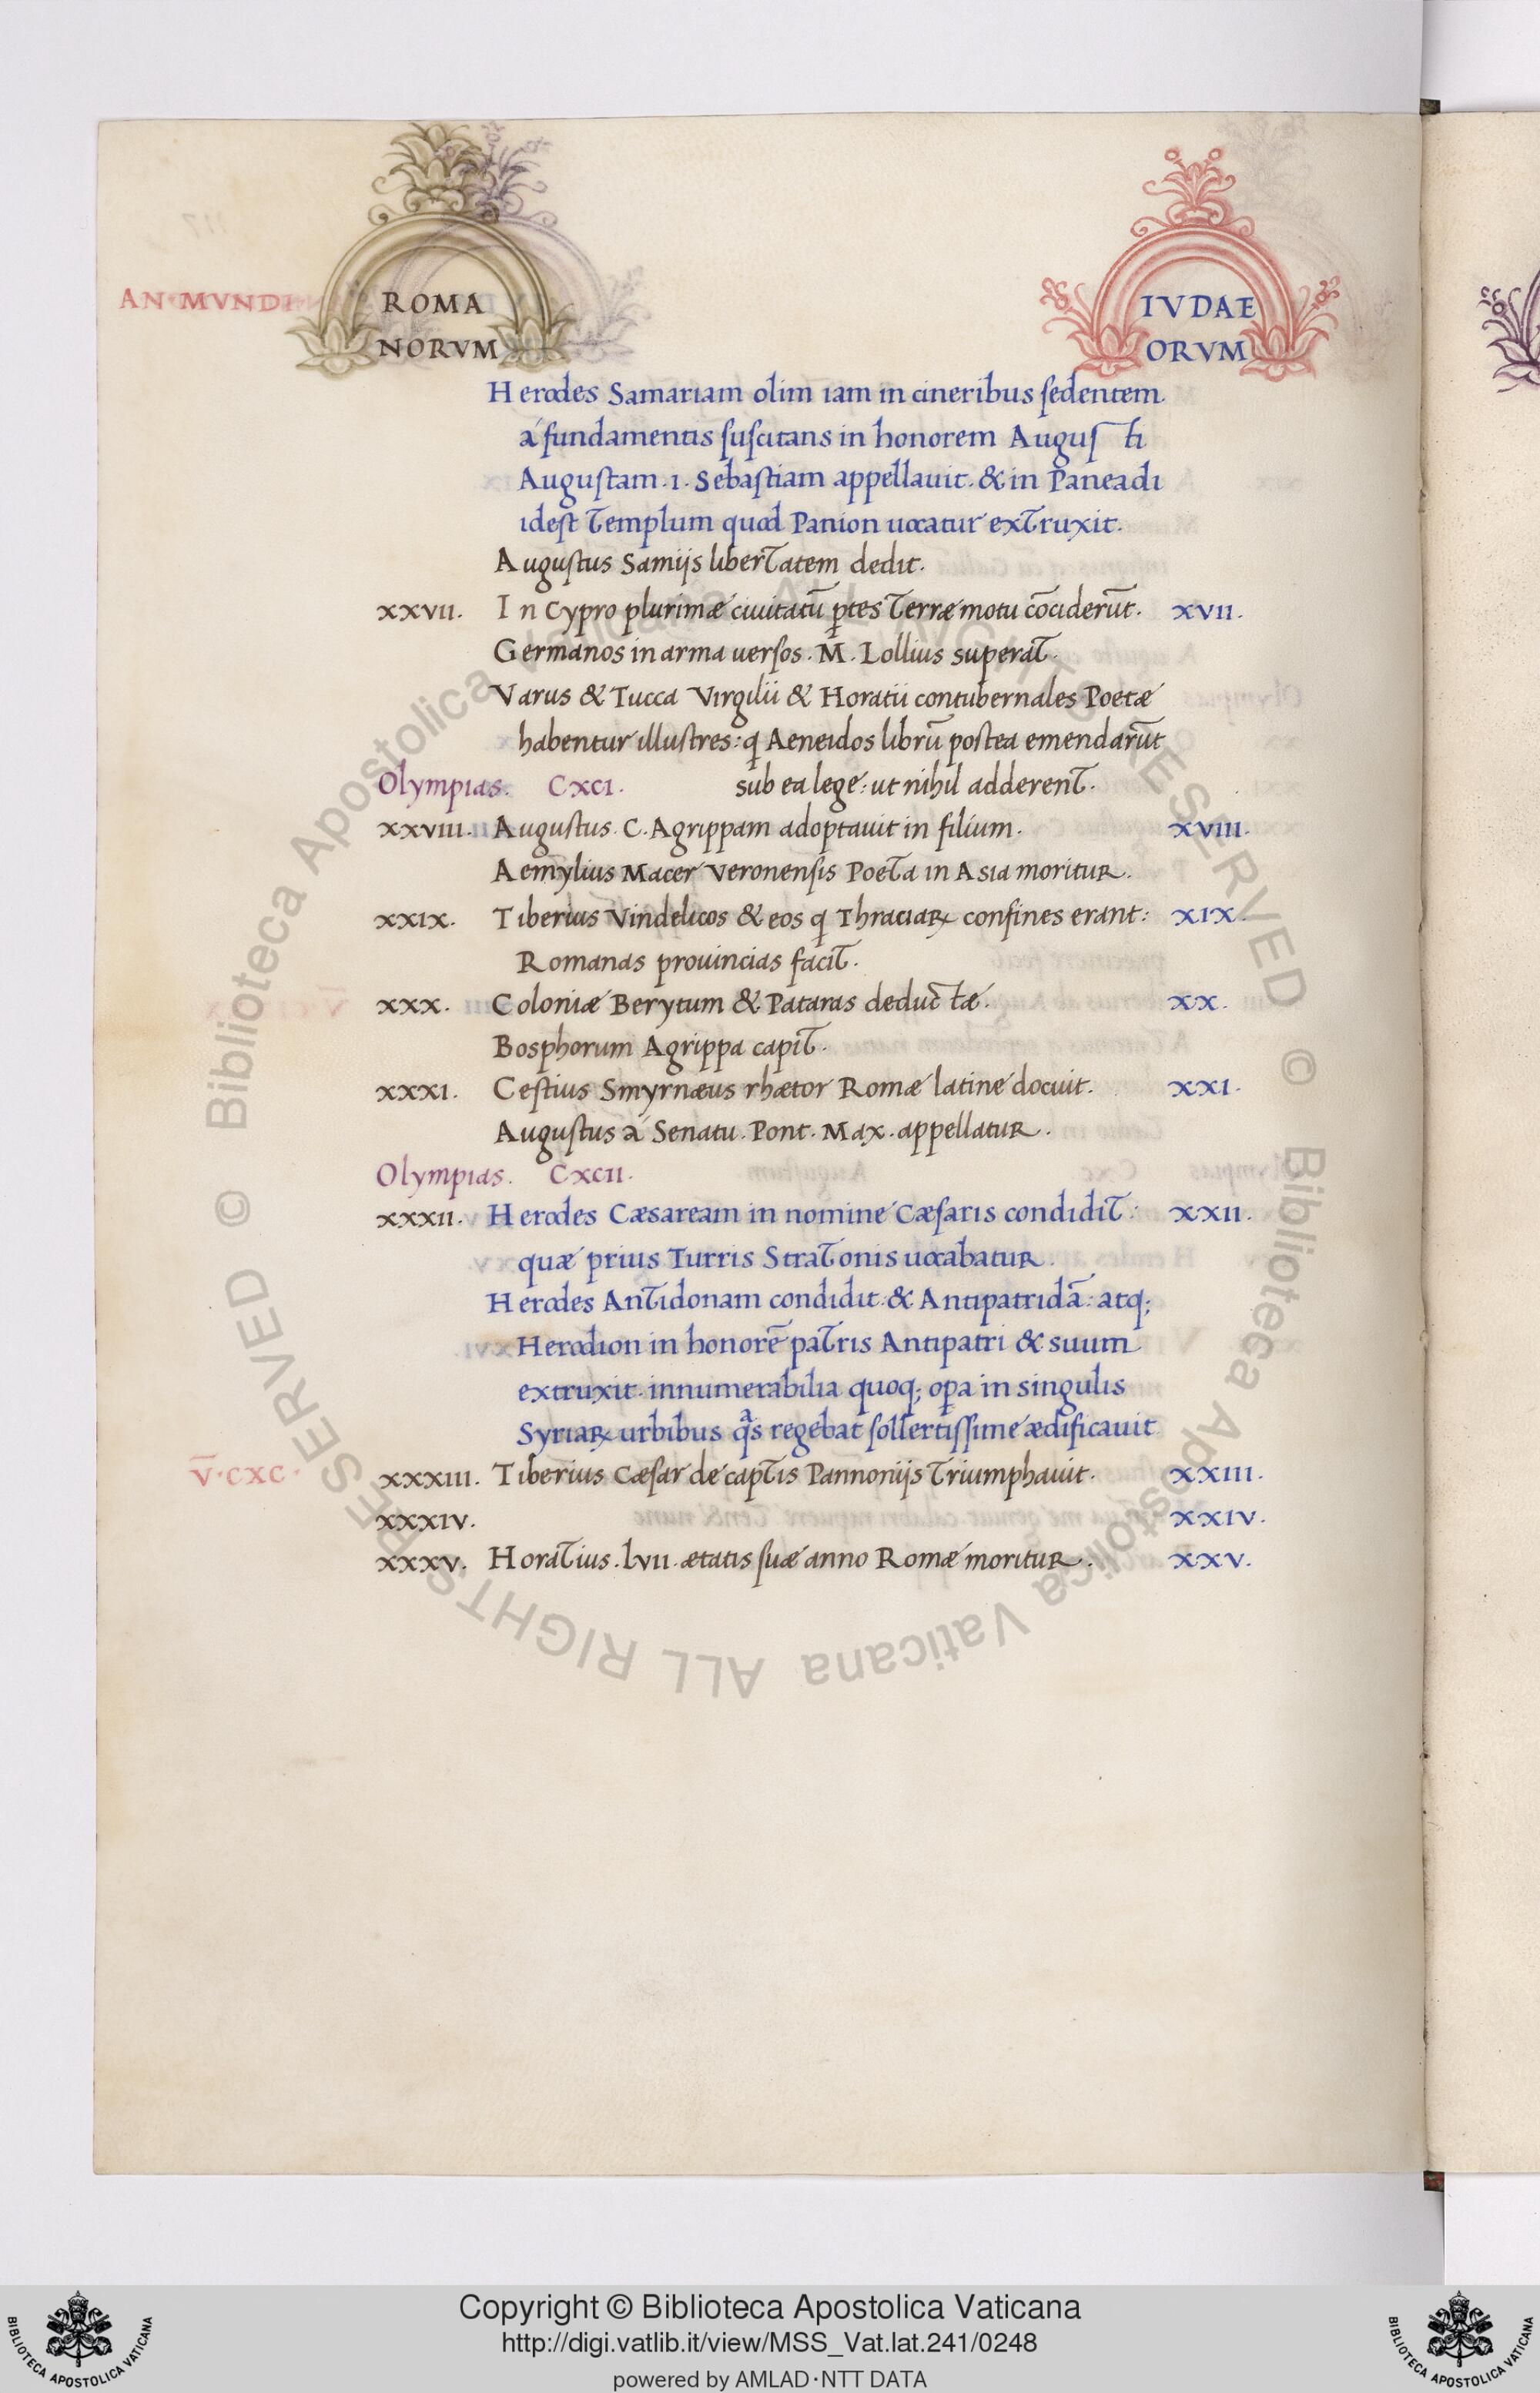 AN·MVNDI
ROMA
NORVM
IVDAE
ORVM
Herodes Samariam olim iam in cineribus sedentem
á fundamentis suscitans in honorem Augusti
Augustam .1. Sebastiam appellauit. & in Paneadi
idest Templum quod Panion uocatur extruxit.
Augustus Samijs libertatem dedit.
xxvii. In Cypro plurimæ ciuitatū ꝑtes Terræmotu cōciderūt. xvii.
Germanos in arma uersos. M. Lollius superat.
Varus & Tucca Virgilii & Horatii contubernales Poetæ
habentur illustres: ꝗ Aeneidos librū postea emendarūt
Olympias. Cxci. sub ea lege: ut nihil adderent.
xxviii. Augustus C. Agrippam adoptauit in filium. xviii.
Aemylius Macer Veronensis Poeta in Asia moritur.
xxix. Tiberius Vindelicos & eos ꝗ Thraciaꝝ confines erant: xix.
Romanas prouincias facit.
xxx. Coloniæ Berytum & Pataras deductæ. xx.
Bosphorum Agrippa capit.
xxxi. Cestius Smyrnæus rhætor Romæ latine docuit. xxi.
Augustus á Senatu. Pont. Max. appellatur.
Olympias. Cxcii.
xxxii. Herodes Cæsaream in nomine Cæsaris condidit: xxii.
quæ prius Turris Stratonis uocabatur.
Herodes Antidonam condidit: & Antipatridā: atq;
Herodion in honorē patris Antipatri & suum
extruxit. innumerabilia quoq; oꝑa in singulis
Syriaꝝ urbibus qᵃs regebat sollertissime ædificauit
V̅·CXC· xxxiii. Tiberius Cæsar de captis Pannonijs Triumphauit. xxiii.
xxxiv. xxiv.
xxxv. Horatius .lvii. ætatis suæ anno Romæ moritur. xxv.
© Biblioteca Apostolica Vaticana ALL RIGHTS RESERVED © Biblioteca Apostolica Vaticana ALL RIGHTS RESERVED
Copyright © Biblioteca Apostolica Vaticana
http://digi.vatlib.it/view/MSS_Vat.lat.241/0248
powered by AMLAD·NTT DATA
BIBLIOTECA APOSTOLICA VATICANA
BIBLIOTECA APOSTOLICA VATICANA